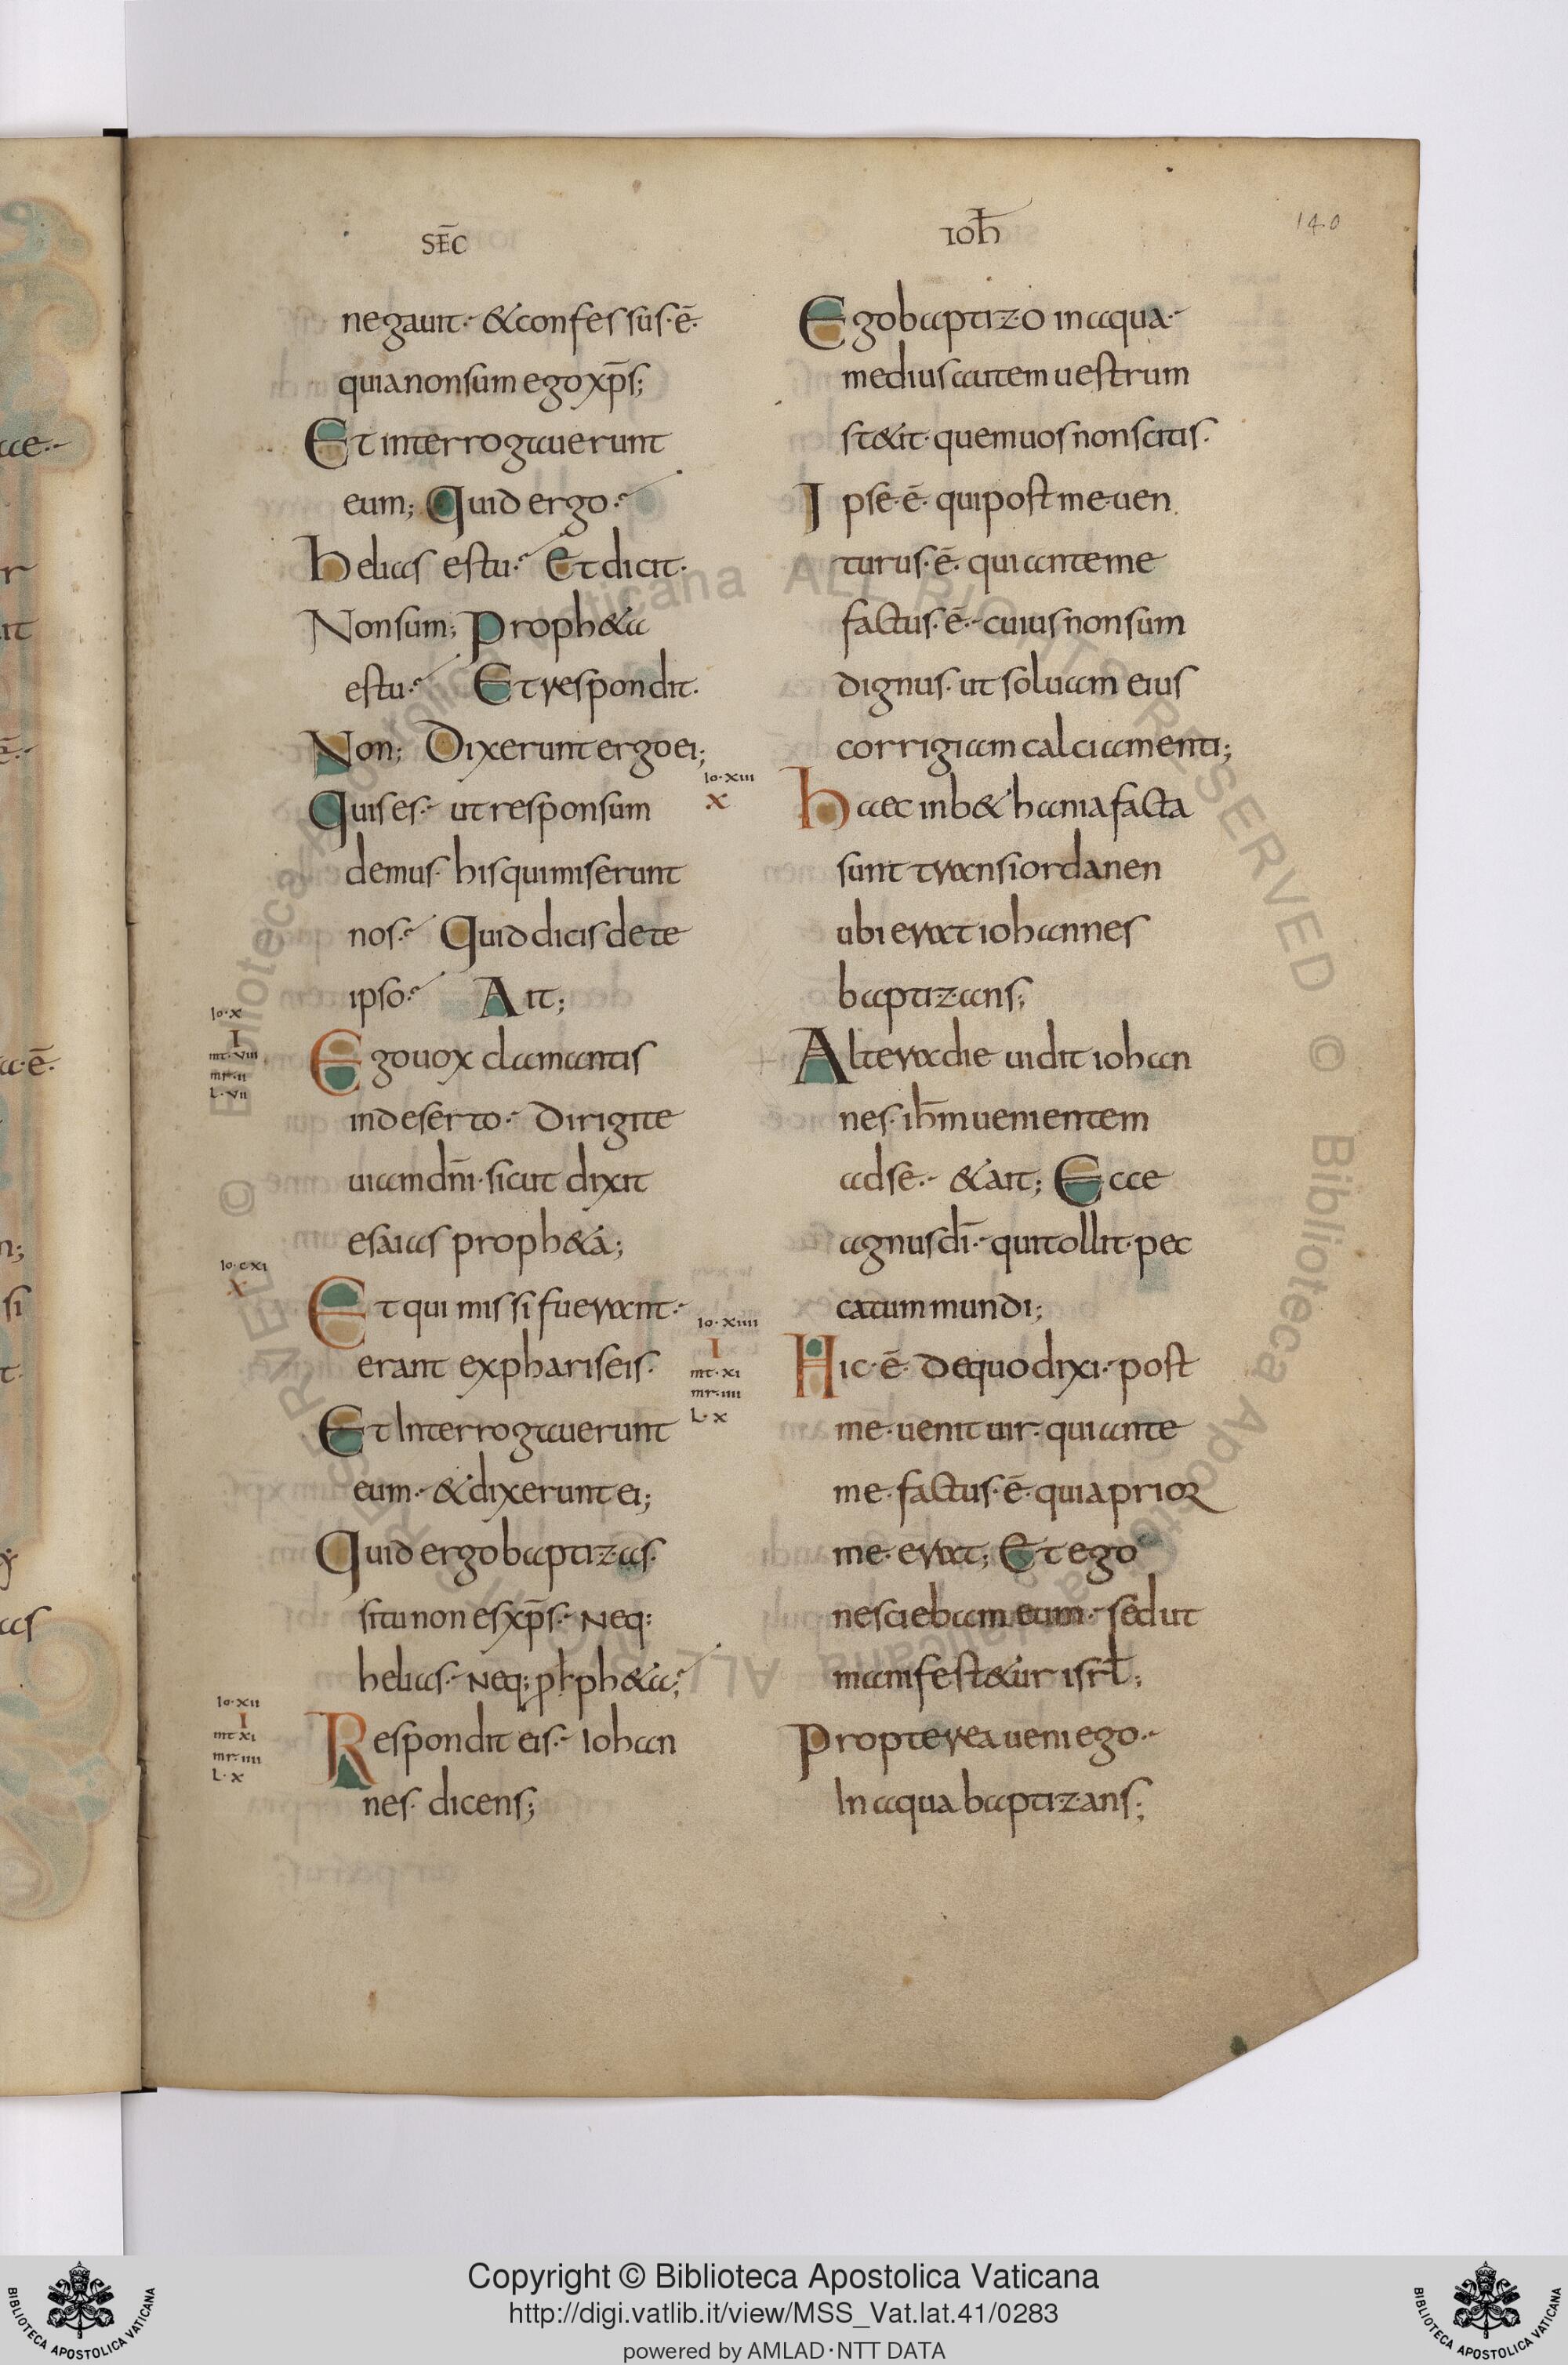 SEC̄
negauit· & confessus·ē·
quia non sum ego xp̄s;
Et interrogauerunt
eum; Quid ergo·
helias es tu· Et dicit·
Non sum; Proph&a
es tu· Et respondit·
Non; Dixerunt ergo ei;
Quis es· ut responsum
demus· his qui miserunt
nos· Quid dicis de te
ipso· Ait;
Io·X
I
mt·VIII
mr·II
L·VII
Ego uox clamantis
in deserto· Dirigite
uiam dn̄i· sicut dixit
esaias proph&a;
Io·XI
X
Et qui missi fuerant·
erant ex phariseis·
Et Interrogauerunt
eum· & dixerunt ei;
Quid ergo baptizas·
si tu non es xp̄s· Neq:
helias· Neq; proph&a;
Io·XII
I
mt XI
mr·IIII
L·X
Respondit eis· Iohan
nes· dicens;
Ioh̄
140
Ego baptizo in aqua·
medius autem uestrum
st&it· quem uos non scitis·
Ipse·ē· qui post me uen
turus·ē· qui ante me
factus·ē· cuius non sum
dignus· ut soluam eius
corrigiam calciamenti;
Io·XIII
X
Haec in b&hania facta
sunt trans iordanen
ubi erat iohannes
baptizans;
Altera die uidit iohan
nes· ih̄m uenientem
ad se· & ait; Ecce
agnus dī· qui tollit· pec
catum mundi;
Io·XIIII
I
mt·XI
mr·IIII
L·X
Hic·ē· De quo dixi· post
me· uenit uir· qui ante
me· factus·ē· quia prior
me· erat; Et ego
nesciebam eum· sed ut
manifest&ur isrl̄;
Propterea ueni ego·
In aqua baptizans;
Copyright © Biblioteca Apostolica Vaticana
http://digi.vatlib.it/view/MSS_Vat.lat.41/0283
powered by AMLAD·NTT DATA
BIBLIOTECA APOSTOLICA VATICANA
BIBLIOTECA APOSTOLICA VATICANA